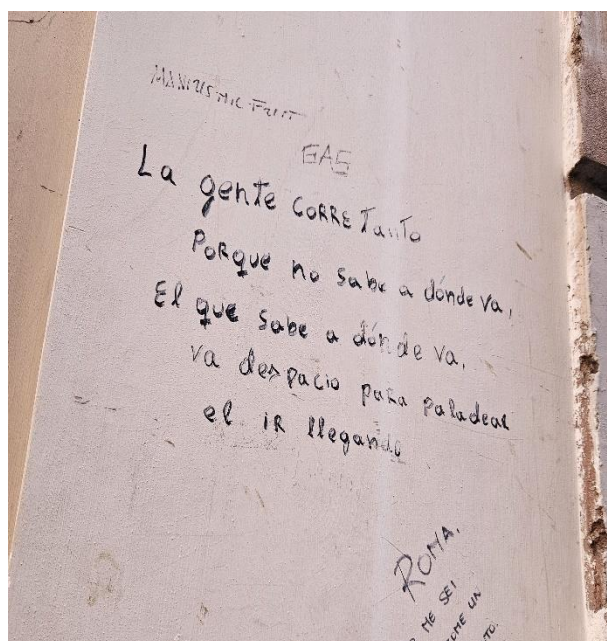 GAS
La gente CORRE Tanto
PORque no sabe a dónde va,
El que sabe a dónde va,
va despacio para paladear
el iR llegando
ROMA,
ME SEI
UN